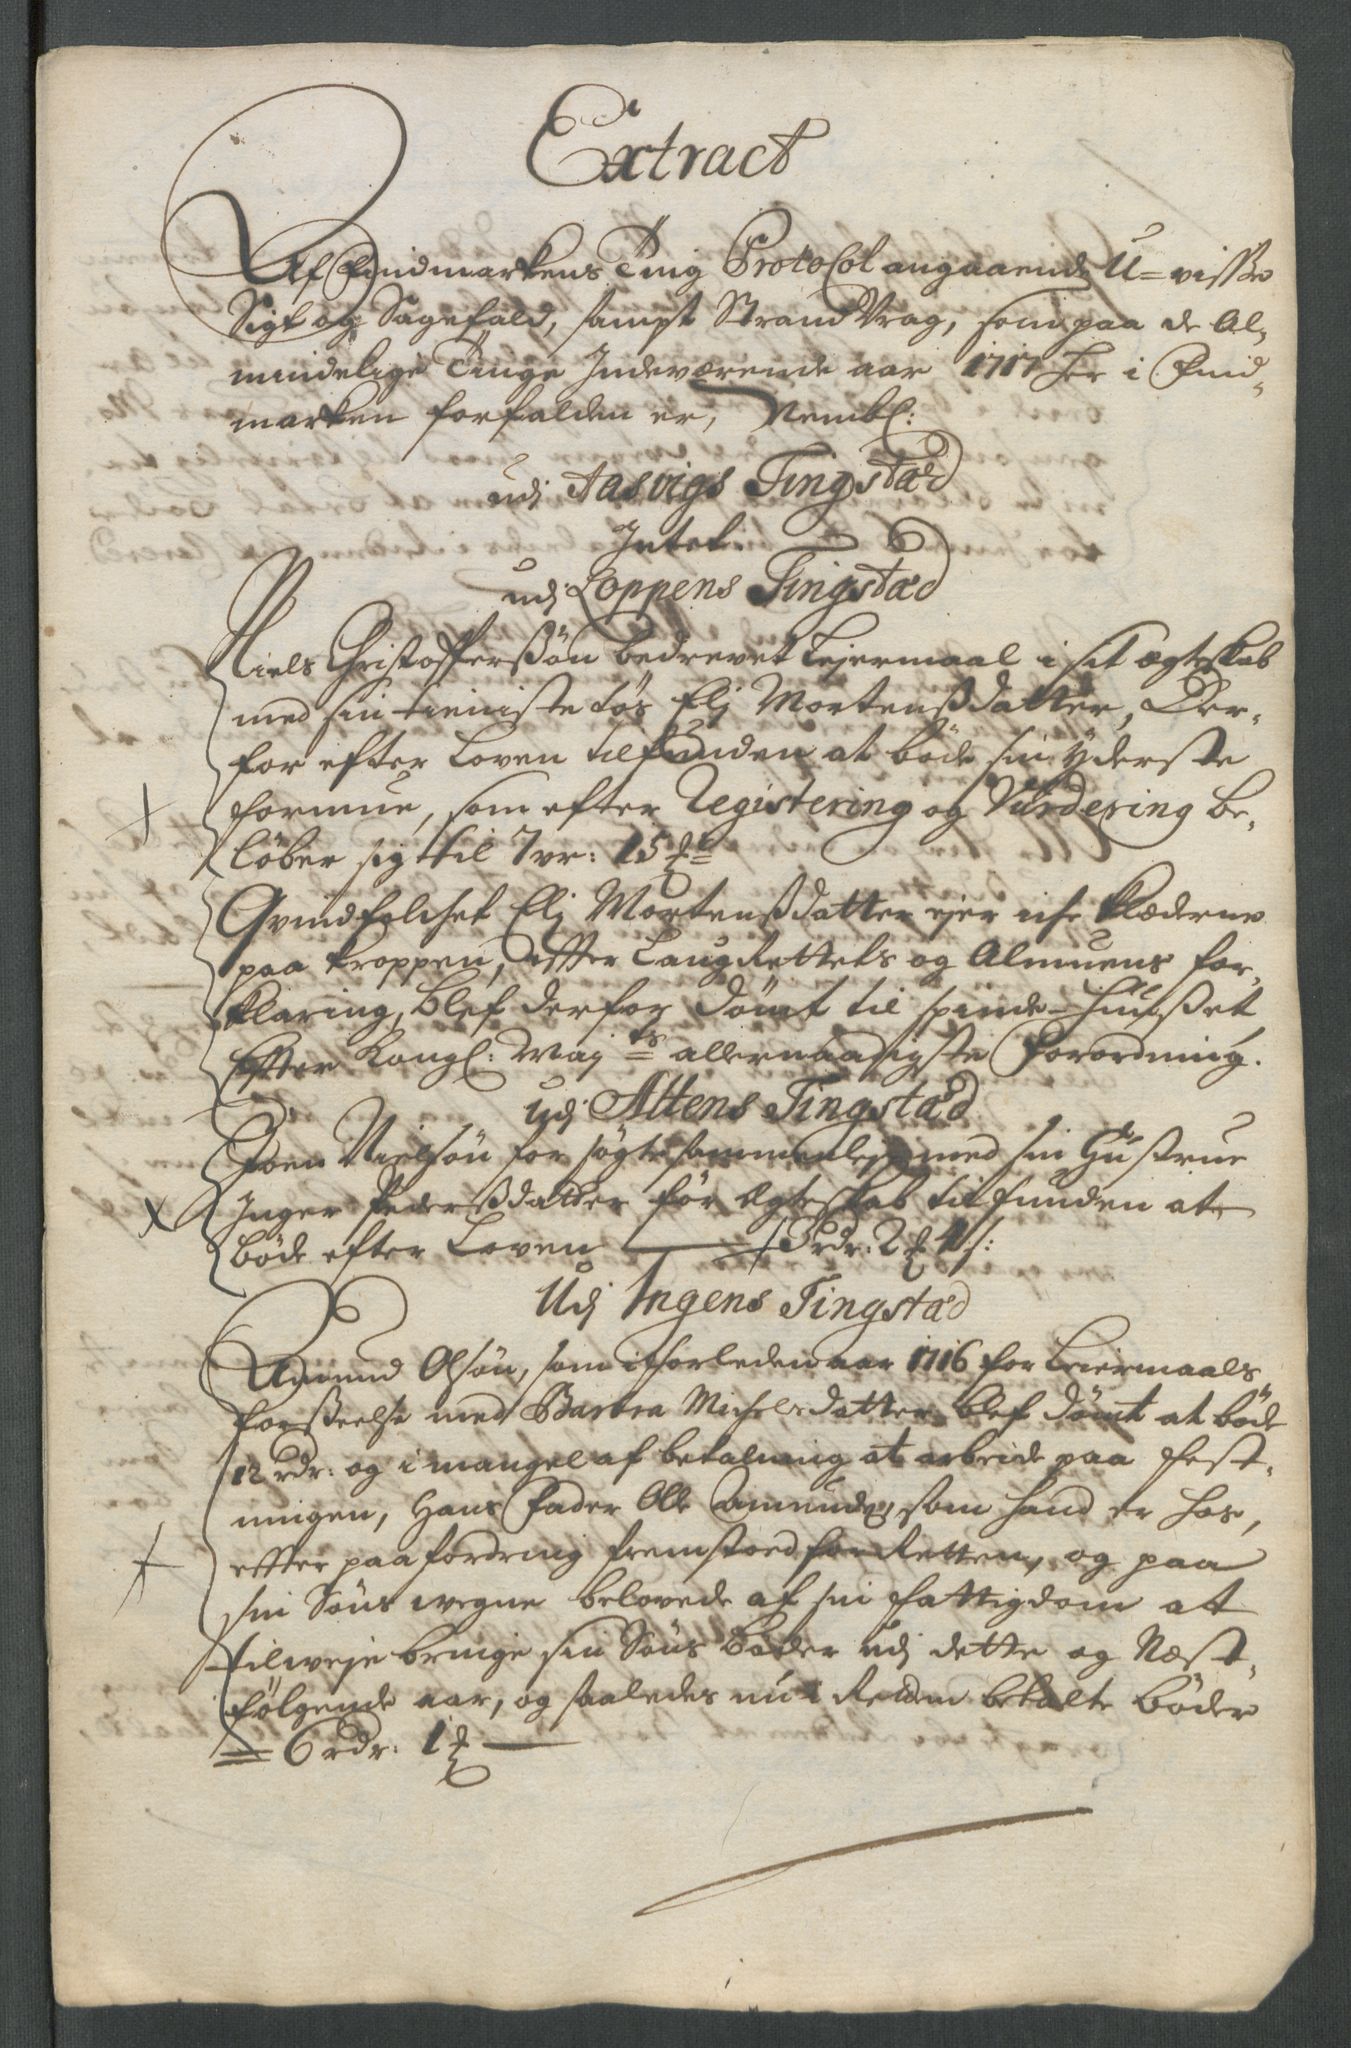 Extract
Af Findmarkens Ting Protocol angaaende U=visse
Sigt og Sagefald, sampt Strand Vrag, som paa de Al,,
mindelige Tinge Indeværende aar 1717 her i Find,,
marken forfalden er, Nembl:
udj Aasvigs Tingstæd
Intet.
udj Loppens Tingstæd
Niels Christoffersøn bedrevet Lejermaal i sit ægteskab
med sin tieniste tøs Elj Mortensdatter, Der,,
for efter Loven tilfunden at bøde sin yderste
formue, som efter Registering og Vurdering be,,
løber sig til 7 vr: 15
Qvindfolchet Elj Mortensdatter ejer iche Klæderne
paa kroppen, efter Laug Rettets og Almuens for,,
klaring, blef derfor dømt til spinde-Huuset
Efter Kongl: Maj ts allernaadigste Forordning.
Udj Altens Tingstæd
Joen Nielsøn for søgte sammenleje med sin Hustrue
Inger Pedersdatter før Egteskab tilfunden at
bøde efter Loven rdr: 2
Udj Ingens Tingstæd
Amund Olsøn, som i forleden aar 1716 for Leiermaals
forseelse med Barbra Michelsdatter blef dømt at bøde
12 rdr: og i mangel af betalning at arbeide paa fest,,
ningen, Hans Fader Ole Amundsøn som hand er hos,
efter paafordring fremstoed for Retten, og paa
sin Søns vegne belovede af sin fattigdom at
tilveje bringe sin Søns bøder udj dette og Næst,,
følgende aar, og saaledes nu i Reden betalte bøder
= 6 rdr: 1